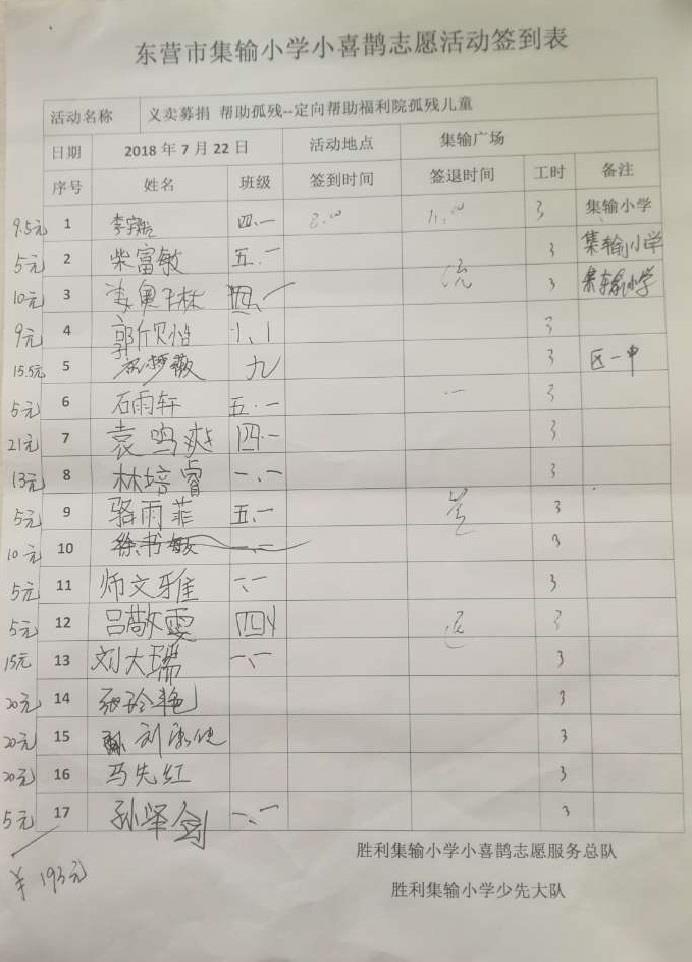 东营市集输小学小喜鹊志愿活动签到表
活动名称 义卖募捐 帮助孤残--定向帮助福利院孤残儿童
日期 2018年7月22日 活动地点 集输广场
序号 姓名 班级 签到时间 签退时间 工时 备注
9.5元 1 四.一 3 集输小学
5元 2 柴富敏 五.一 3 集输小学
10元 3 四.一 3 集输小学
9元 4 郭欣怡 3
15.5元 5 九 3 区一中
5元 6 石雨轩 五.一 3
21元 7 袁鸣爽 四.一 3
13元 8 林培睿 一.一 3
5元 9 骆雨菲 五.一 3
10元 10 徐书敏 一.一 3
5元 11 师文雅 一.一 3
5元 12 吕敬雯 3
15元 13 刘大瑞 一.一 3
20元 14 张玲艳 3
20元 15 3
20元 16 马先红 3
5元 17 一.一 3
¥193元
胜利集输小学小喜鹊志愿服务总队
胜利集输小学少先大队